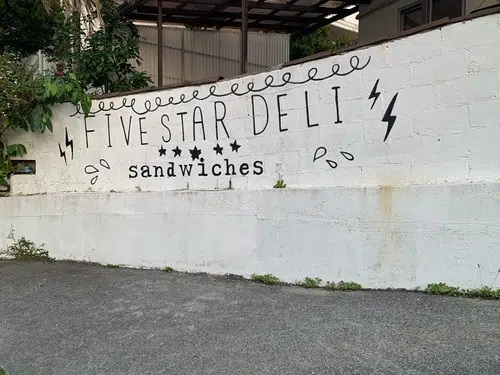 FIVE STAR DELI
sandwiches